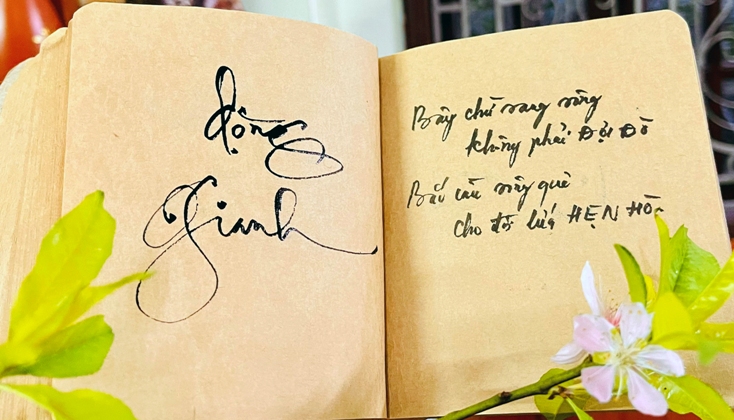 dòng
Gianh
Bây chừ sang sông
không phải ĐỢI ĐÒ
Bắc cầu sông quê
cho đôi lứa HẸN HÒ